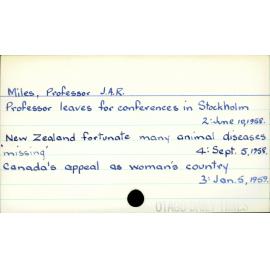 Miles, Professor J.A.R.
Professor leaves for conferences in Stockholm
2: June 10, 1958.
New Zealand fortunate many animal diseases
'missing'    4: Sept. 5, 1958.
Canada's appeal as woman's country
3: Jan. 5, 1959.
OTAGO DAILY TIMES